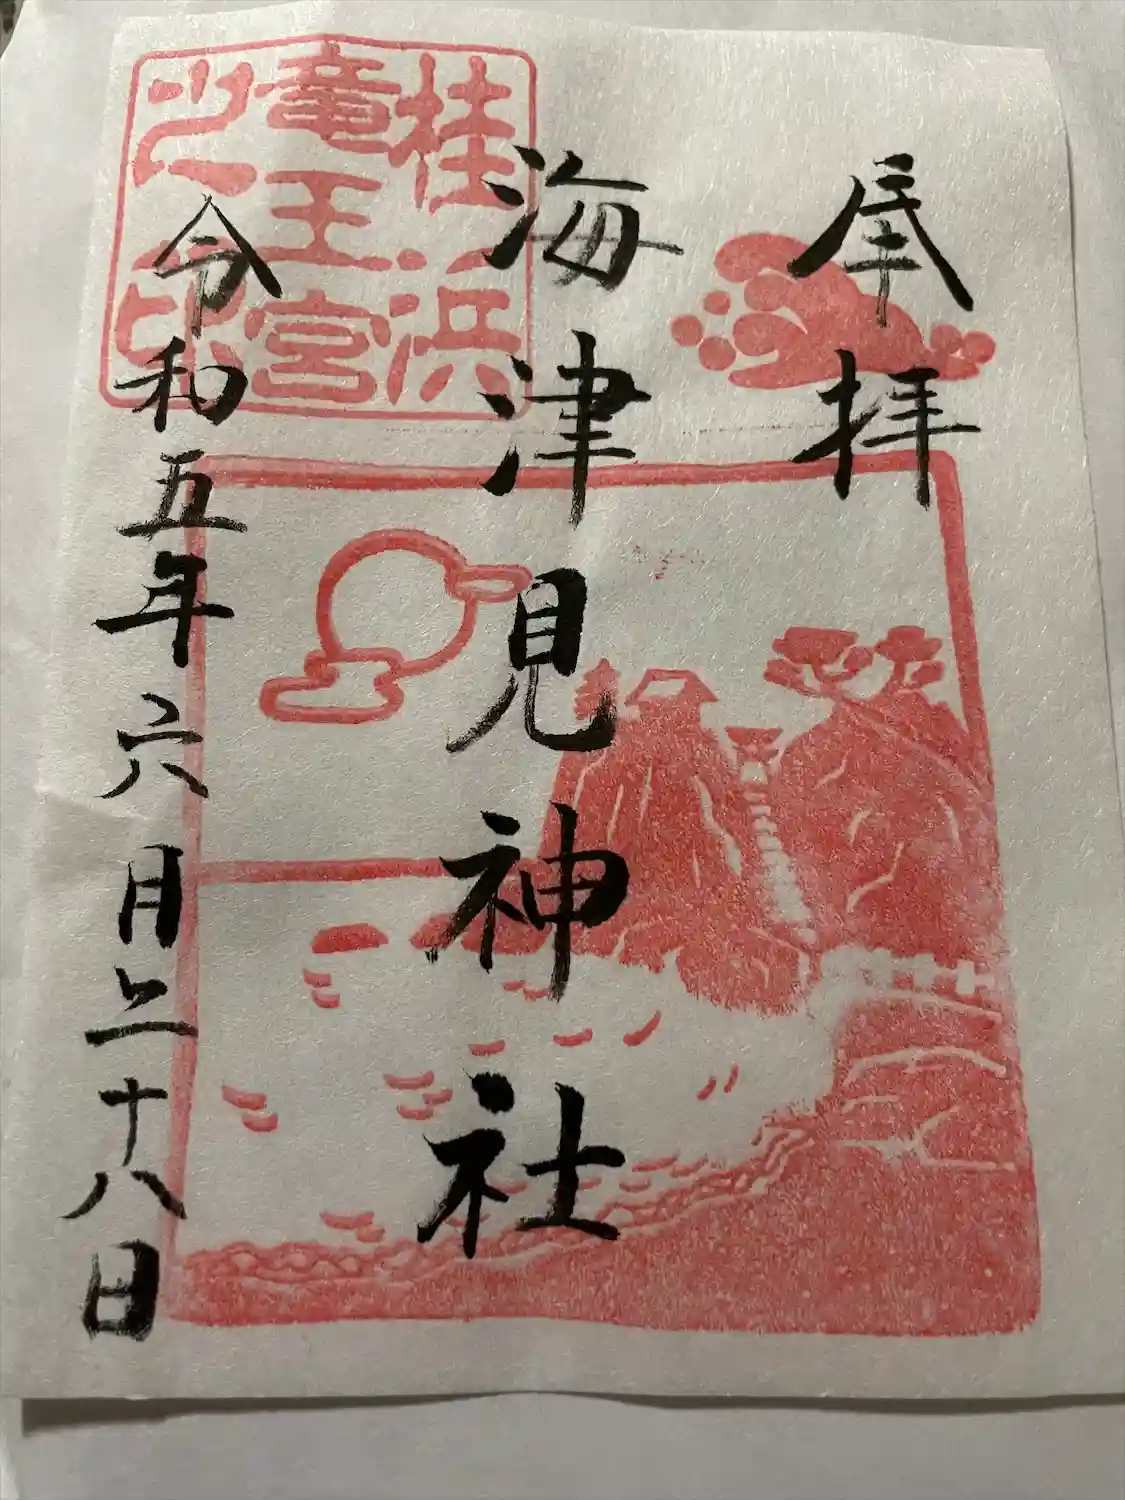 奉拝
海津見神社
令和五年六月二十八日
桂浜
竜王宮
之印